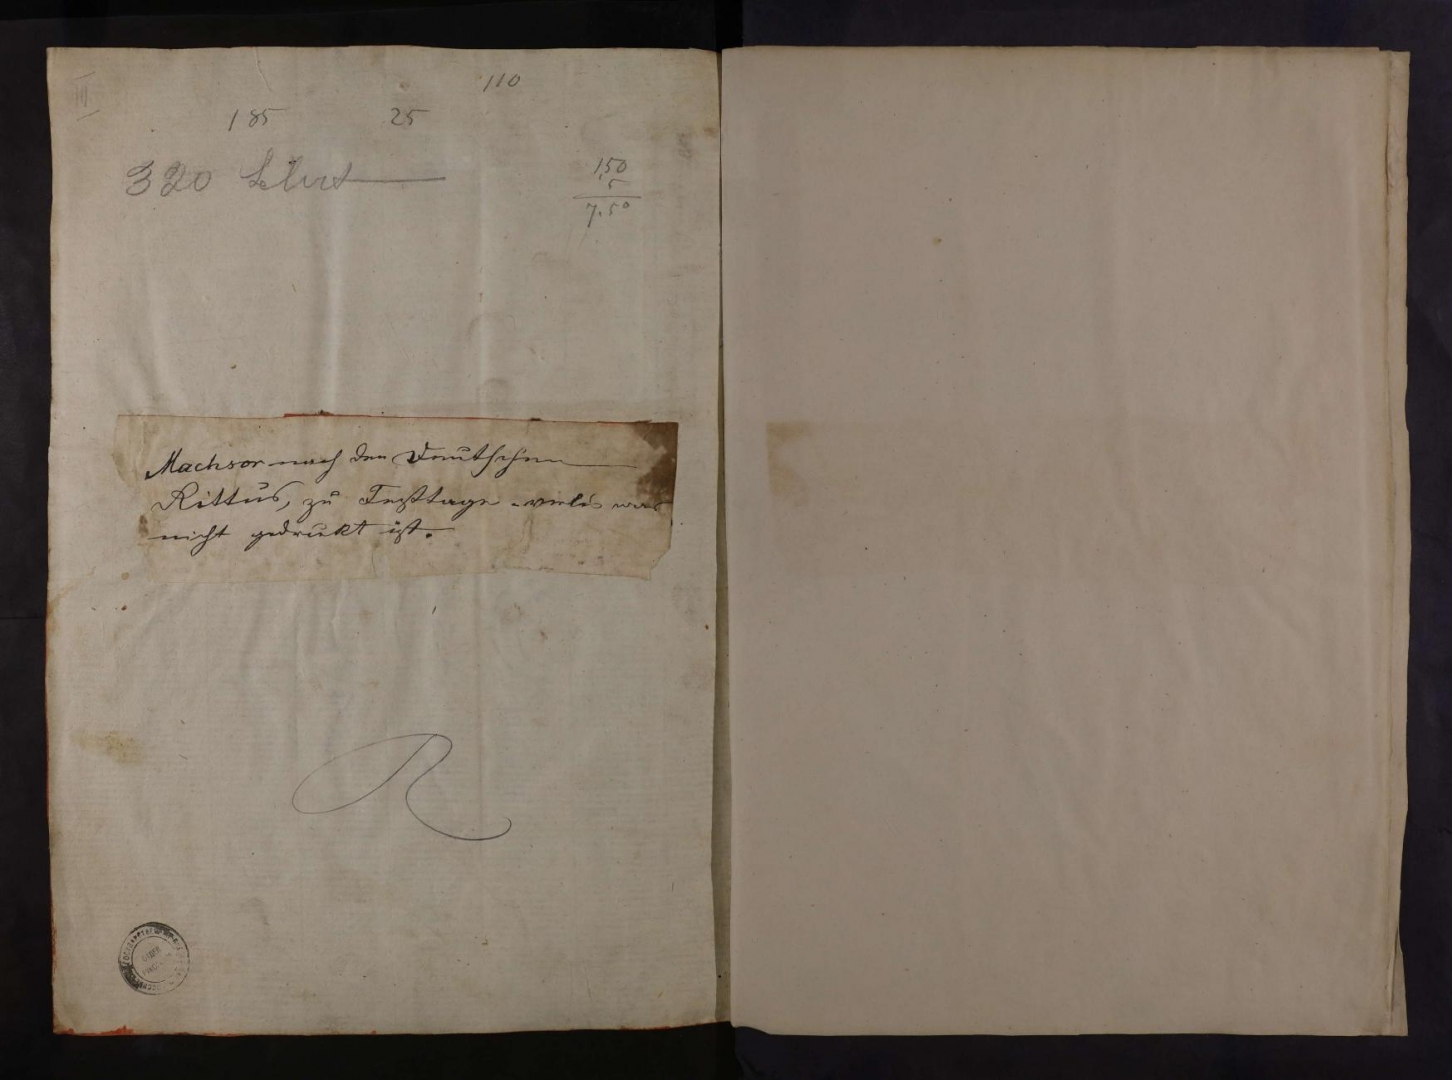 III
110
185 25
320
150
5
7.50
Machsor nach den Deutschen
Rittus, zu Festtage vieles was
nicht gedrukt ist.